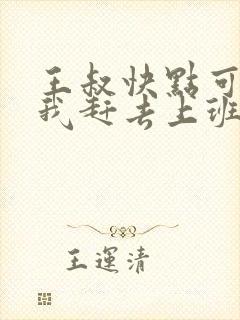 王叔快點可
我赶去上班
王運清